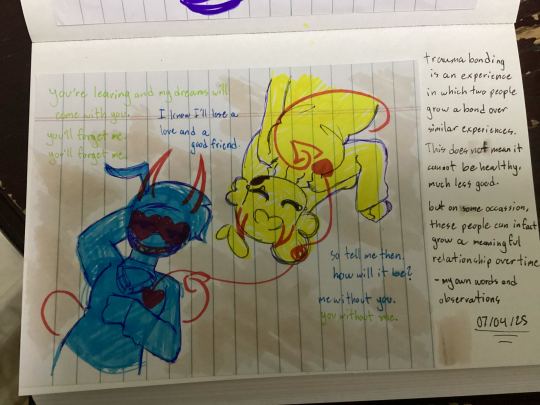 you're leaving and my dreams will
come with you.
you'll forget me.
you'll forget me.
I know I'll lose a
love and a
good friend.
so tell me then.
how will it be?
me without you.
you without me.
trauma bonding
is an experience
in which two people
grow a bond over
similar experiences.
This does not mean it
cannot be healthy,
much less good.
but on some occassion,
these people can infact
grow a meaningful
relationship over time.
- my own words and
observations
07/04/25